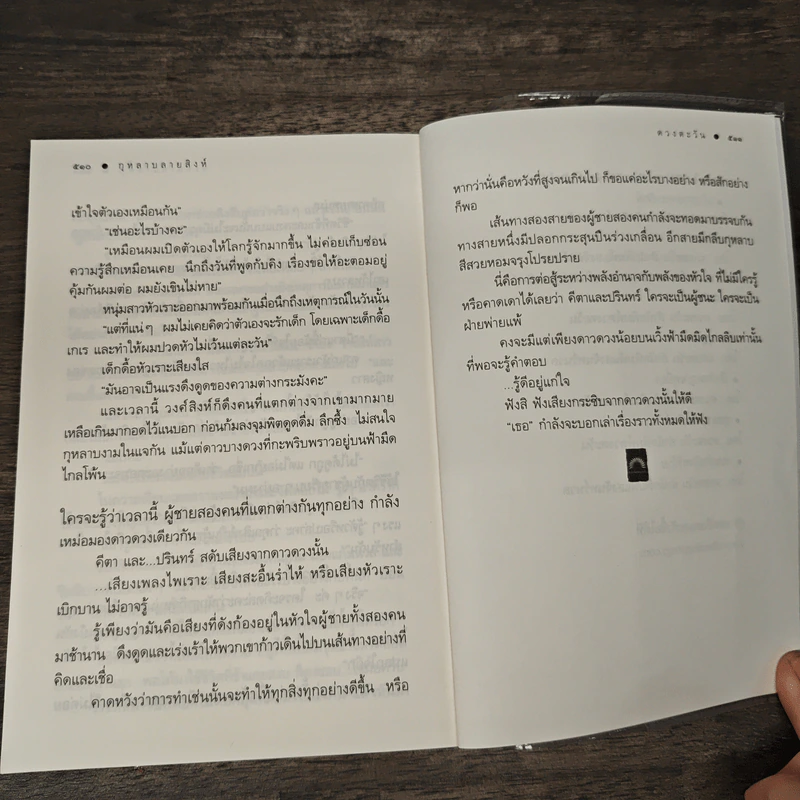 ๕๑๐ ● กุหลาบลายสิงห์
เข้าใจตัวเองเหมือนกัน”
“เช่นอะไรบ้างคะ”
“เหมือนผมเปิดตัวเองให้โลกรู้จักมากขึ้น ไม่ค่อยเก็บซ่อน
ความรู้สึกเหมือนเคย นึกถึงวันที่พูดกับคิง เรื่องขอให้อะตอมอยู่
คุ้มกันผมต่อ ผมยังเขินไม่หาย”
หนุ่มสาวหัวเราะออกมาพร้อมกันเมื่อนึกถึงเหตุการณ์ในวันนั้น
“แต่ที่แน่ๆ ผมไม่เคยคิดว่าตัวเองจะรักเด็ก โดยเฉพาะเด็กดื้อ
เกเร และทำให้ผมปวดหัวไม่เว้นแต่ละวัน”
เด็กดื้อหัวเราะเสียงใส
“มันอาจเป็นแรงดึงดูดของความต่างกระมังคะ”
และเวลานี้ วงศ์สิงห์ก็ดึงคนที่แตกต่างจากเขามากมาย
เหลือเกินมากอดไว้แนบอก ก่อนก้มลงจุมพิตดูดดื่ม ลึกซึ้ง ไม่สนใจ
กุหลาบงามในแจกัน แม้แต่ดาวบางดวงที่กะพริบพราวอยู่บนฟ้ามืด
ไกลโพ้น
ใครจะรู้ว่าเวลานี้ ผู้ชายสองคนที่แตกต่างกันทุกอย่าง กำลัง
เหม่อมองดาวดวงเดียวกัน
คีตา และ...ปรินทร์ สดับเสียงจากดาวดวงนั้น
...เสียงเพลงไพเราะ เสียงสะอื้นร่ำไห้ หรือเสียงหัวเราะ
เบิกบาน ไม่อาจรู้
รู้เพียงว่ามันคือเสียงที่ดังก้องอยู่ในหัวใจผู้ชายทั้งสองคน
มาช้านาน ดึงดูดและเร่งเร้าให้พวกเขาก้าวเดินไปบนเส้นทางอย่างที่
คิดและเชื่อ
คาดหวังว่าการทำเช่นนั้นจะทำให้ทุกสิ่งทุกอย่างดีขึ้น หรือ
ดวงตะวัน ● ๕๑๑
หากว่านั่นคือหวังที่สูงจนเกินไป ก็ขอแค่อะไรบางอย่าง หรือสักอย่าง
ก็พอ
เส้นทางสองสายของผู้ชายสองคนกำลังจะทอดมาบรรจบกัน
ทางสายหนึ่งมีปลอกกระสุนปืนร่วงเกลื่อน อีกสายมีกลีบกุหลาบ
สีสวยหอมจรุงโปรยปราย
นี่คือการต่อสู้ระหว่างพลังอำนาจกับพลังของหัวใจ ที่ไม่มีใครรู้
หรือคาดเดาได้เลยว่า คีตาและปรินทร์ ใครจะเป็นผู้ชนะ ใครจะเป็น
ฝ่ายพ่ายแพ้
คงจะมีแต่เพียงดาวดวงน้อยบนเวิ้งฟ้ามืดมิดไกลลิบเท่านั้น
ที่พอจะรู้คำตอบ
...รู้ดีอยู่แก่ใจ
ฟังสิ ฟังเสียงกระซิบจากดาวดวงนั้นให้ดี
“เธอ” กำลังจะบอกเล่าเรื่องราวทั้งหมดให้ฟัง